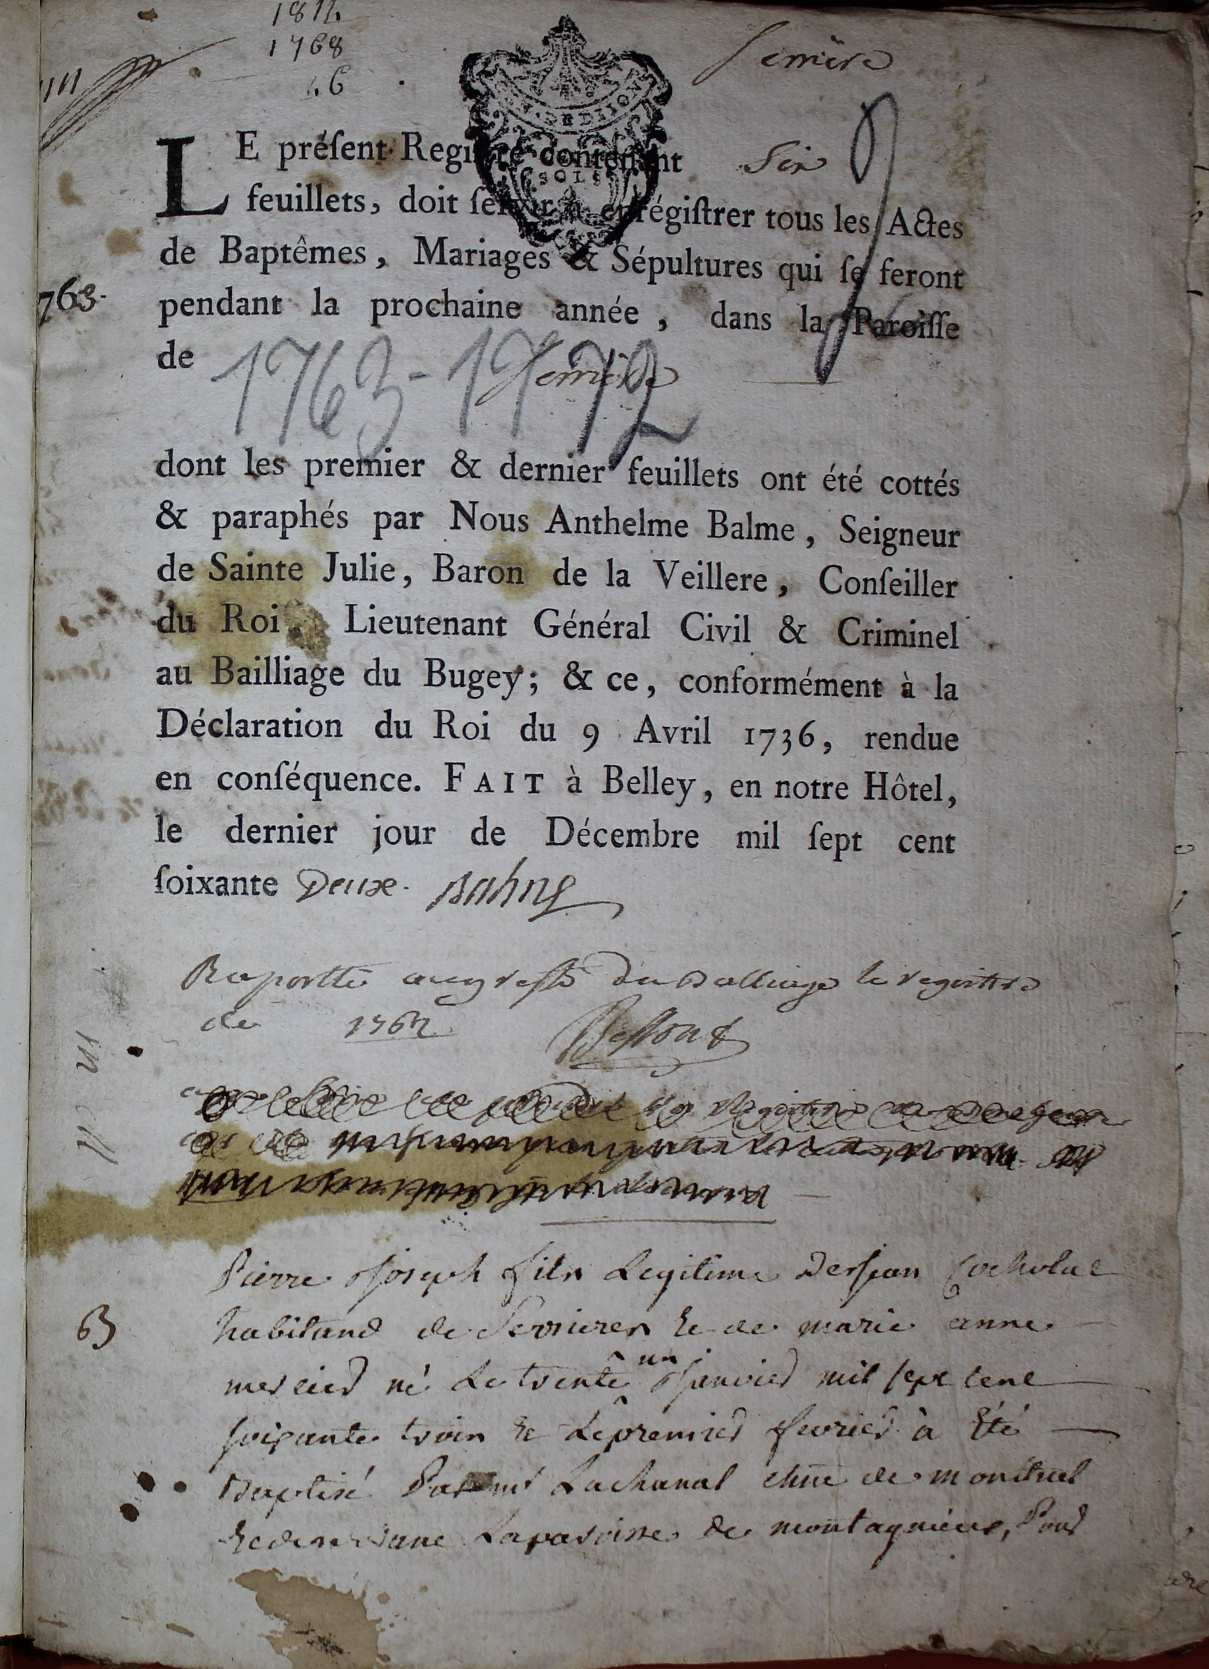 1768
LE préſent Regiſtre contenant Six
feuillets, doit ſervir à enrégiſtrer tous les Actes
de Baptêmes, Mariages & Sépultures qui ſe feront
763.
pendant la prochaine année, dans la Paroiſſe
de
1763-1772
dont les premier & dernier feuillets ont été cottés
& paraphés par Nous Anthelme Balme, Seigneur
de Sainte Julie, Baron de la Veillere, Conſeiller
du Roi, Lieutenant Général Civil & Criminel
au Bailliage du Bugey; & ce, conformément à la
Déclaration du Roi du 9 Avril 1736, rendue
en conſéquence. FAIT à Belley, en notre Hôtel,
le dernier jour de Décembre mil ſept cent
ſoixante Deux.
Raportté au greffe du Balliage le registre
de 1762
Pierre Joseph fils Legitime de Jean
63
habitand de Serrieres & de marie anne
mercier né Le trente un Janvier mil sept cent
soixante trois & Le premier fevrier à Eté
Baptisé Par Lachanal de
La paroisse de montagnieu, Pour